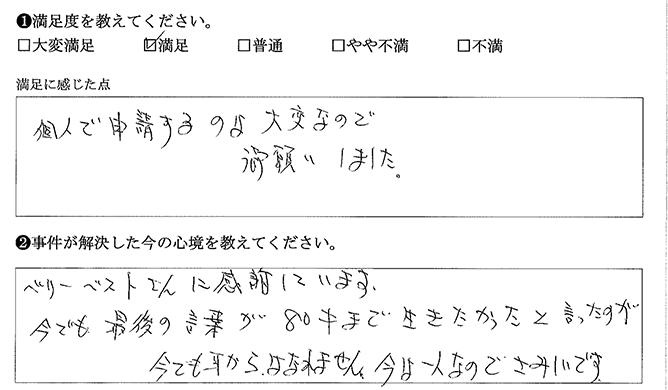 ❶満足度を教えてください。
□大変満足 ☑満足 □普通 □やや不満 □不満
満足に感じた点
個人で申請するのは大変なので
御願いしました。
❷事件が解決した今の心境を教えてください。
ベリーベストさんに感謝しています。
今でも最後の言葉が80才まで生きたかったと言ったのが
今でも耳からはなれません、今は一人なのでさみしいです